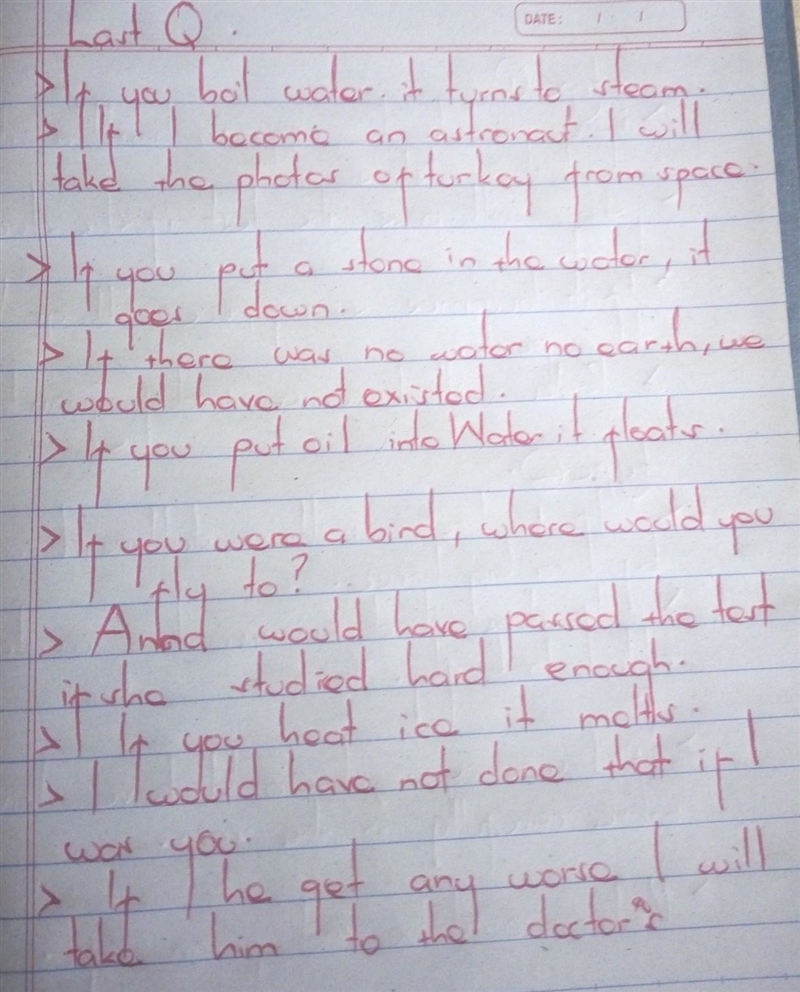 Last Q.
DATE: / /
> If you boil water. it turns to steam.
> If I become an astronact. I will
take the photos of turkey from space.
> If you put a stone in the water, it
goes down.
> If there was no water no earth, we
would have not existed.
> If you put oil into Water it floats.
> If you were a bird, where would you
fly to?
> Annd would have passed the test
if she studied hard enough.
> If you heat ice it melts.
> I would have not done that if I
was you.
> If he get any worse I will
take him to the doctor's